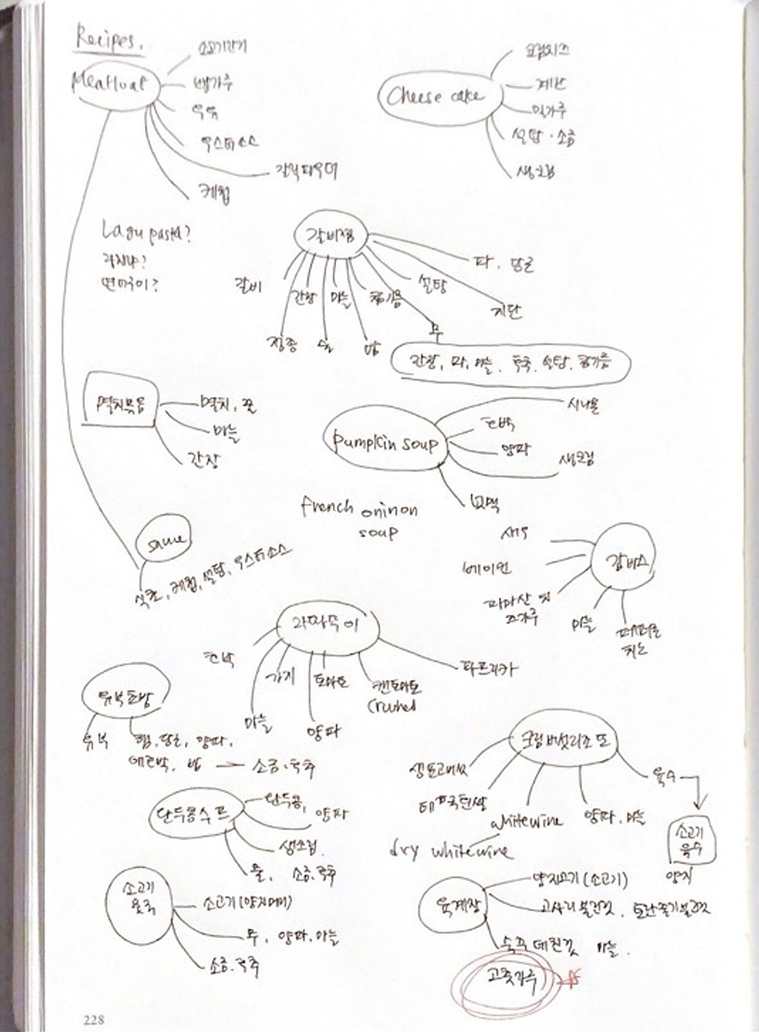 Recipes.
Meatloaf
소고기간거
빵가루
우유
우스터소스
갈릭파우더
케첩
Cheese cake
크림치즈
계란
밀가루
설탕 · 소금
생크림
Lagu pasta?
갈비찜
갈비
간장
마늘
참기름
설탕
파, 당근
지단
무
정종
물
밤
간장, 파, 마늘, 후추, 설탕, 참기름
멸치볶음
멸치, 꿀
마늘
간장
pumpkin soup
시나몬
호박
양파
생크림
french oninon
soup
sauce
식초, 케첩, 설탕, 우스터소스
감바스
새우
베이컨
마늘
페퍼론
치노
라따뚜이
호박
가지
토마토
캔토마토
Crushed
파프리카
마늘
양파
유부초밥
유부
햄, 당근, 양파,
애호박, 밥
소금·후추
크림버섯리조또
생표고버섯
white wine
dry white wine
양파, 마늘
육수
소고기
육수
양지
완두콩수프
완두콩,
양파
생크림.
물, 소금·후추
소고기
육수
소고기(양지머리)
무, 양파, 마늘
소금·후추
육계장
양지고기(소고기)
고사리불린것, 토란줄기불린것
숙주데친것 마늘.
고춧가루
228